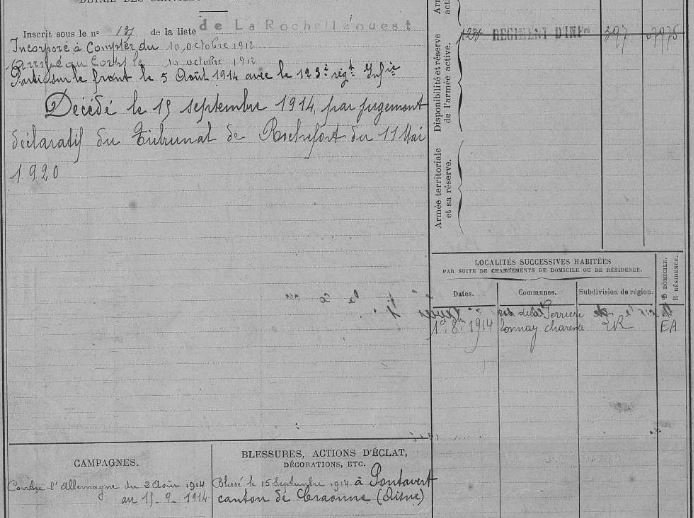 Inscrit sous le n° 137 de la liste de La Rochelle ouest
Incorporé à Compter du 10 octobre 1912
Arrivé au Corps le 10 octobre 1912
Parti sur le front le 5 Août 1914 avec le 123e régt Infie
Décédé le 15 septembre 1914 par jugement
déclaratif du Tribunal de Rochefort du 11 Mai
1920
123e REGIMENT D'INFie 397
Disponibilité et réserve
de l'armée active.
Armée territoriale
et sa réserve.
LOCALITÉS SUCCESSIVES HABITÉES
PAR SUITE DE CHANGEMENTS DE DOMICILE OU DE RÉSIDENCE.
D DOMICILE.
R RÉSIDENCE.
Dates.
Communes.
Subdivision de région.
1er 8 1914 Tonnay charente
CAMPAGNES.
Contre l'Allemagne du 2 Août 1914
au 15-9-1914
BLESSURES, ACTIONS D'ÉCLAT,
DÉCORATIONS, ETC.
Blessé le 15 Septembre 1914 à Pontavert
canton de Craonne (Aisne)